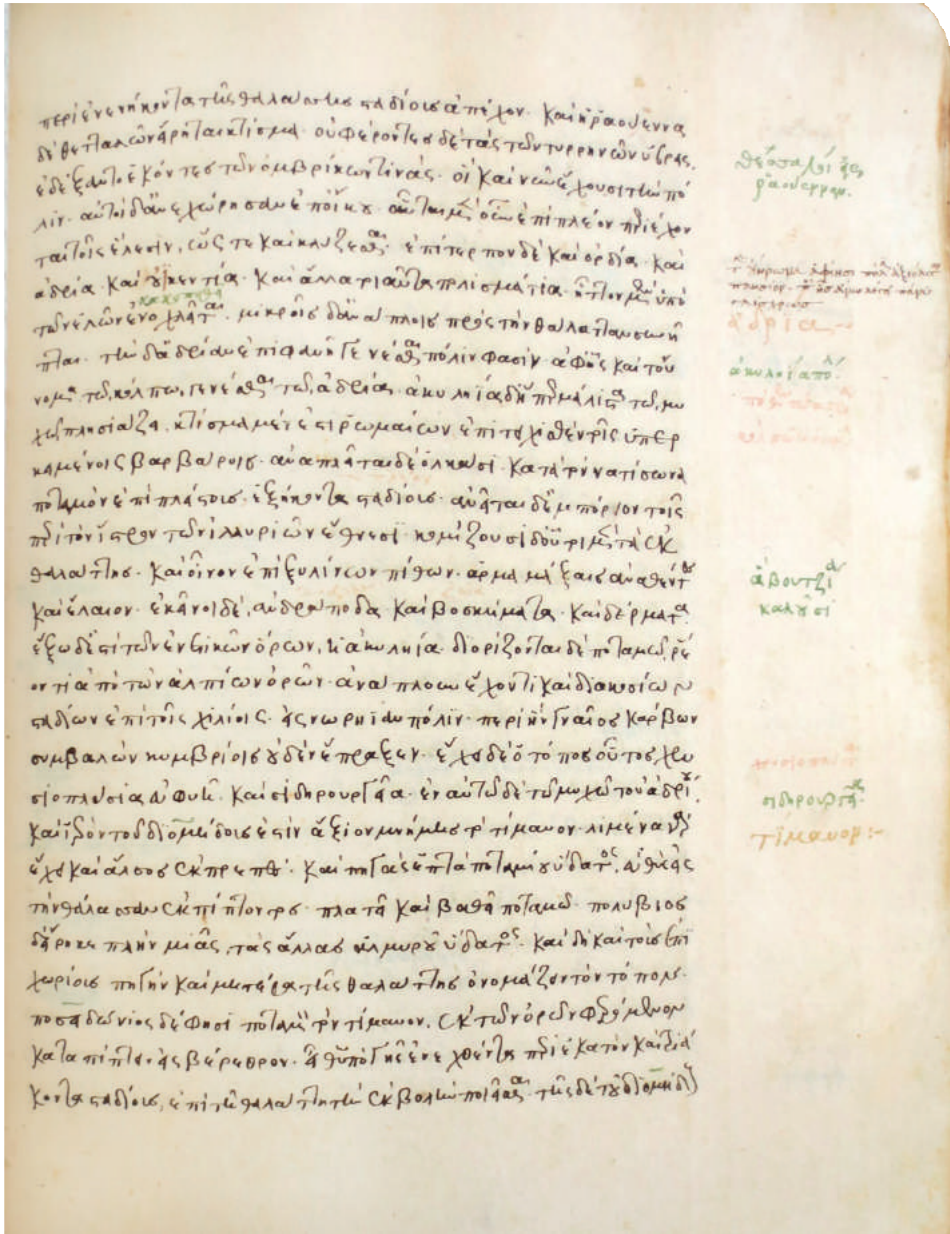 περὶ ἐνενήκοντα τῆς θαλάσσης σταδίοις ἀπέχον. καὶ ἡ ῥαουέννα
δὲ θετταλῶν εἴρηται κτίσμα. οὐ φέροντες δὲ τὰς τῶν τυρρηνῶν ὕβρεις,
ἐδέξαντο ἑκόντες τῶν ὀμβρικῶν τινάς. οἳ καὶ νῦν ἔχουσι τὴν πό
λιν. αὐτοὶ δ' ἀνεχώρησαν ἐπ' οἴκου. αὗται μὲν οὖν ἐπὶ πλέον περιέχον
ται τοῖς ἕλεσιν, ὥς τε καὶ κλύζεσθαι. ἐπίτερπον δὲ καὶ ὀρδία. καὶ
ἀδρία. καὶ οὐικεντία. καὶ ἄλλα τοιαῦτα πολισμάτια. ἧττον μὲν ὑπὸ
τῶν ἑλῶν ἐνοχλεῖται. μικροῖς δ' ἀνάπλοις πρὸς τὴν θάλατταν συνῆ
πται. τὴν δ' ἀδρίαν ἐπιφανῆ γενέσθαι πόλιν φασίν. ἀφ' ἧς καὶ τοὔ
νομα τῷ κόλπῳ γενέσθαι τῷ ἀδρίᾳ. ἀκυληία δ' ἥπερ μάλιστα τῷ μυ
χῷ πλησιάζει, κτίσμα μέν ἐστι ῥωμαίων ἐπιτειχισθὲν τοῖς ὑπερ
κειμένοις βαρβάροις. ἀναπλεῖται δὲ ὁλκάσι. κατὰ τὸν νατίσωνα
ποταμὸν ἐπὶ πλείστοις ἑξήκοντα σταδίοις. ἀνεῖται δ' ἐμπόριον τοῖς
περὶ τὸν ἴστρον τῶν ἰλλυριῶν ἔθνεσι. κομίζουσι δ' οὗτοι μὲν τὰ ἐκ
θαλάττης. καὶ οἶνον ἐπὶ ξυλίνων πίθων. ἁρμαμάξαις ἀναθέντες
καὶ ἔλαιον. ἐκεῖνοι δέ, ἀνδράποδα καὶ βοσκήματα. καὶ δέρματα.
ἔξω δ' ἐστὶ τῶν ἐνετικῶν ὅρων, ἡ ἀκυληία. διορίζονται δὲ ποταμῷ, ῥέ
οντι ἀπὸ τῶν ἀλπίων ὀρῶν. ἀνάπλουν ἔχοντι καὶ διακοσίων
σταδίων ἐπὶ τοῖς χιλίοις. εἰς νωρηίαν πόλιν. περὶ ἣν γναῖος κάρβων
συμβαλὼν κυμβρίοις οὐδὲν ἔπραξεν. ἔχει δὲ ὁ τόπος οὗτος χρυ
σιοπλύσια εὐφυῆ. καὶ σιδηρουργεῖα. ἐν αὐτῷ δὲ τῷ μυχῷ τοῦ ἀδρίου
καὶ ἱερὸν τοῦ διομήδους ἐστὶν ἄξιον μνήμης τὸ τίμαυον. λιμένα γὰρ
ἔχει καὶ ἄλσος ἐκπρεπές. καὶ πηγὰς ἑπτὰ ποταμίου ὕδατος, εὐθὺς εἰς
τὴν θάλασσαν ἐκπίπτοντος. πλατεῖ καὶ βαθεῖ ποταμῷ. πολύβιος
δ' εἴρηκε πλὴν μιᾶς, τὰς ἄλλας ἁλμυροῦ ὕδατος. καὶ δὴ καὶ τοὺς ἐπι
χωρίους πηγὴν καὶ μητέρα τῆς θαλάττης ὀνομάζειν τὸν τόπον.
ποσειδώνιος δέ φησι ποταμὸν τὸν τίμαυον, ἐκ τῶν ὀρῶν φερόμενον
καταπίπτειν εἰς βέρεθρον. εἶθ' ὑπὸ γῆς ἐνεχθέντα περὶ ἑκατὸν καὶ τριά
κοντα σταδίους, ἐπὶ τῇ θαλάττῃ τὴν ἐκβολὴν ποιεῖσθαι. τῆς δὲ τοῦ διομήδους
ἀδρία
σιδηρουργεῖα
τίμαυον :-